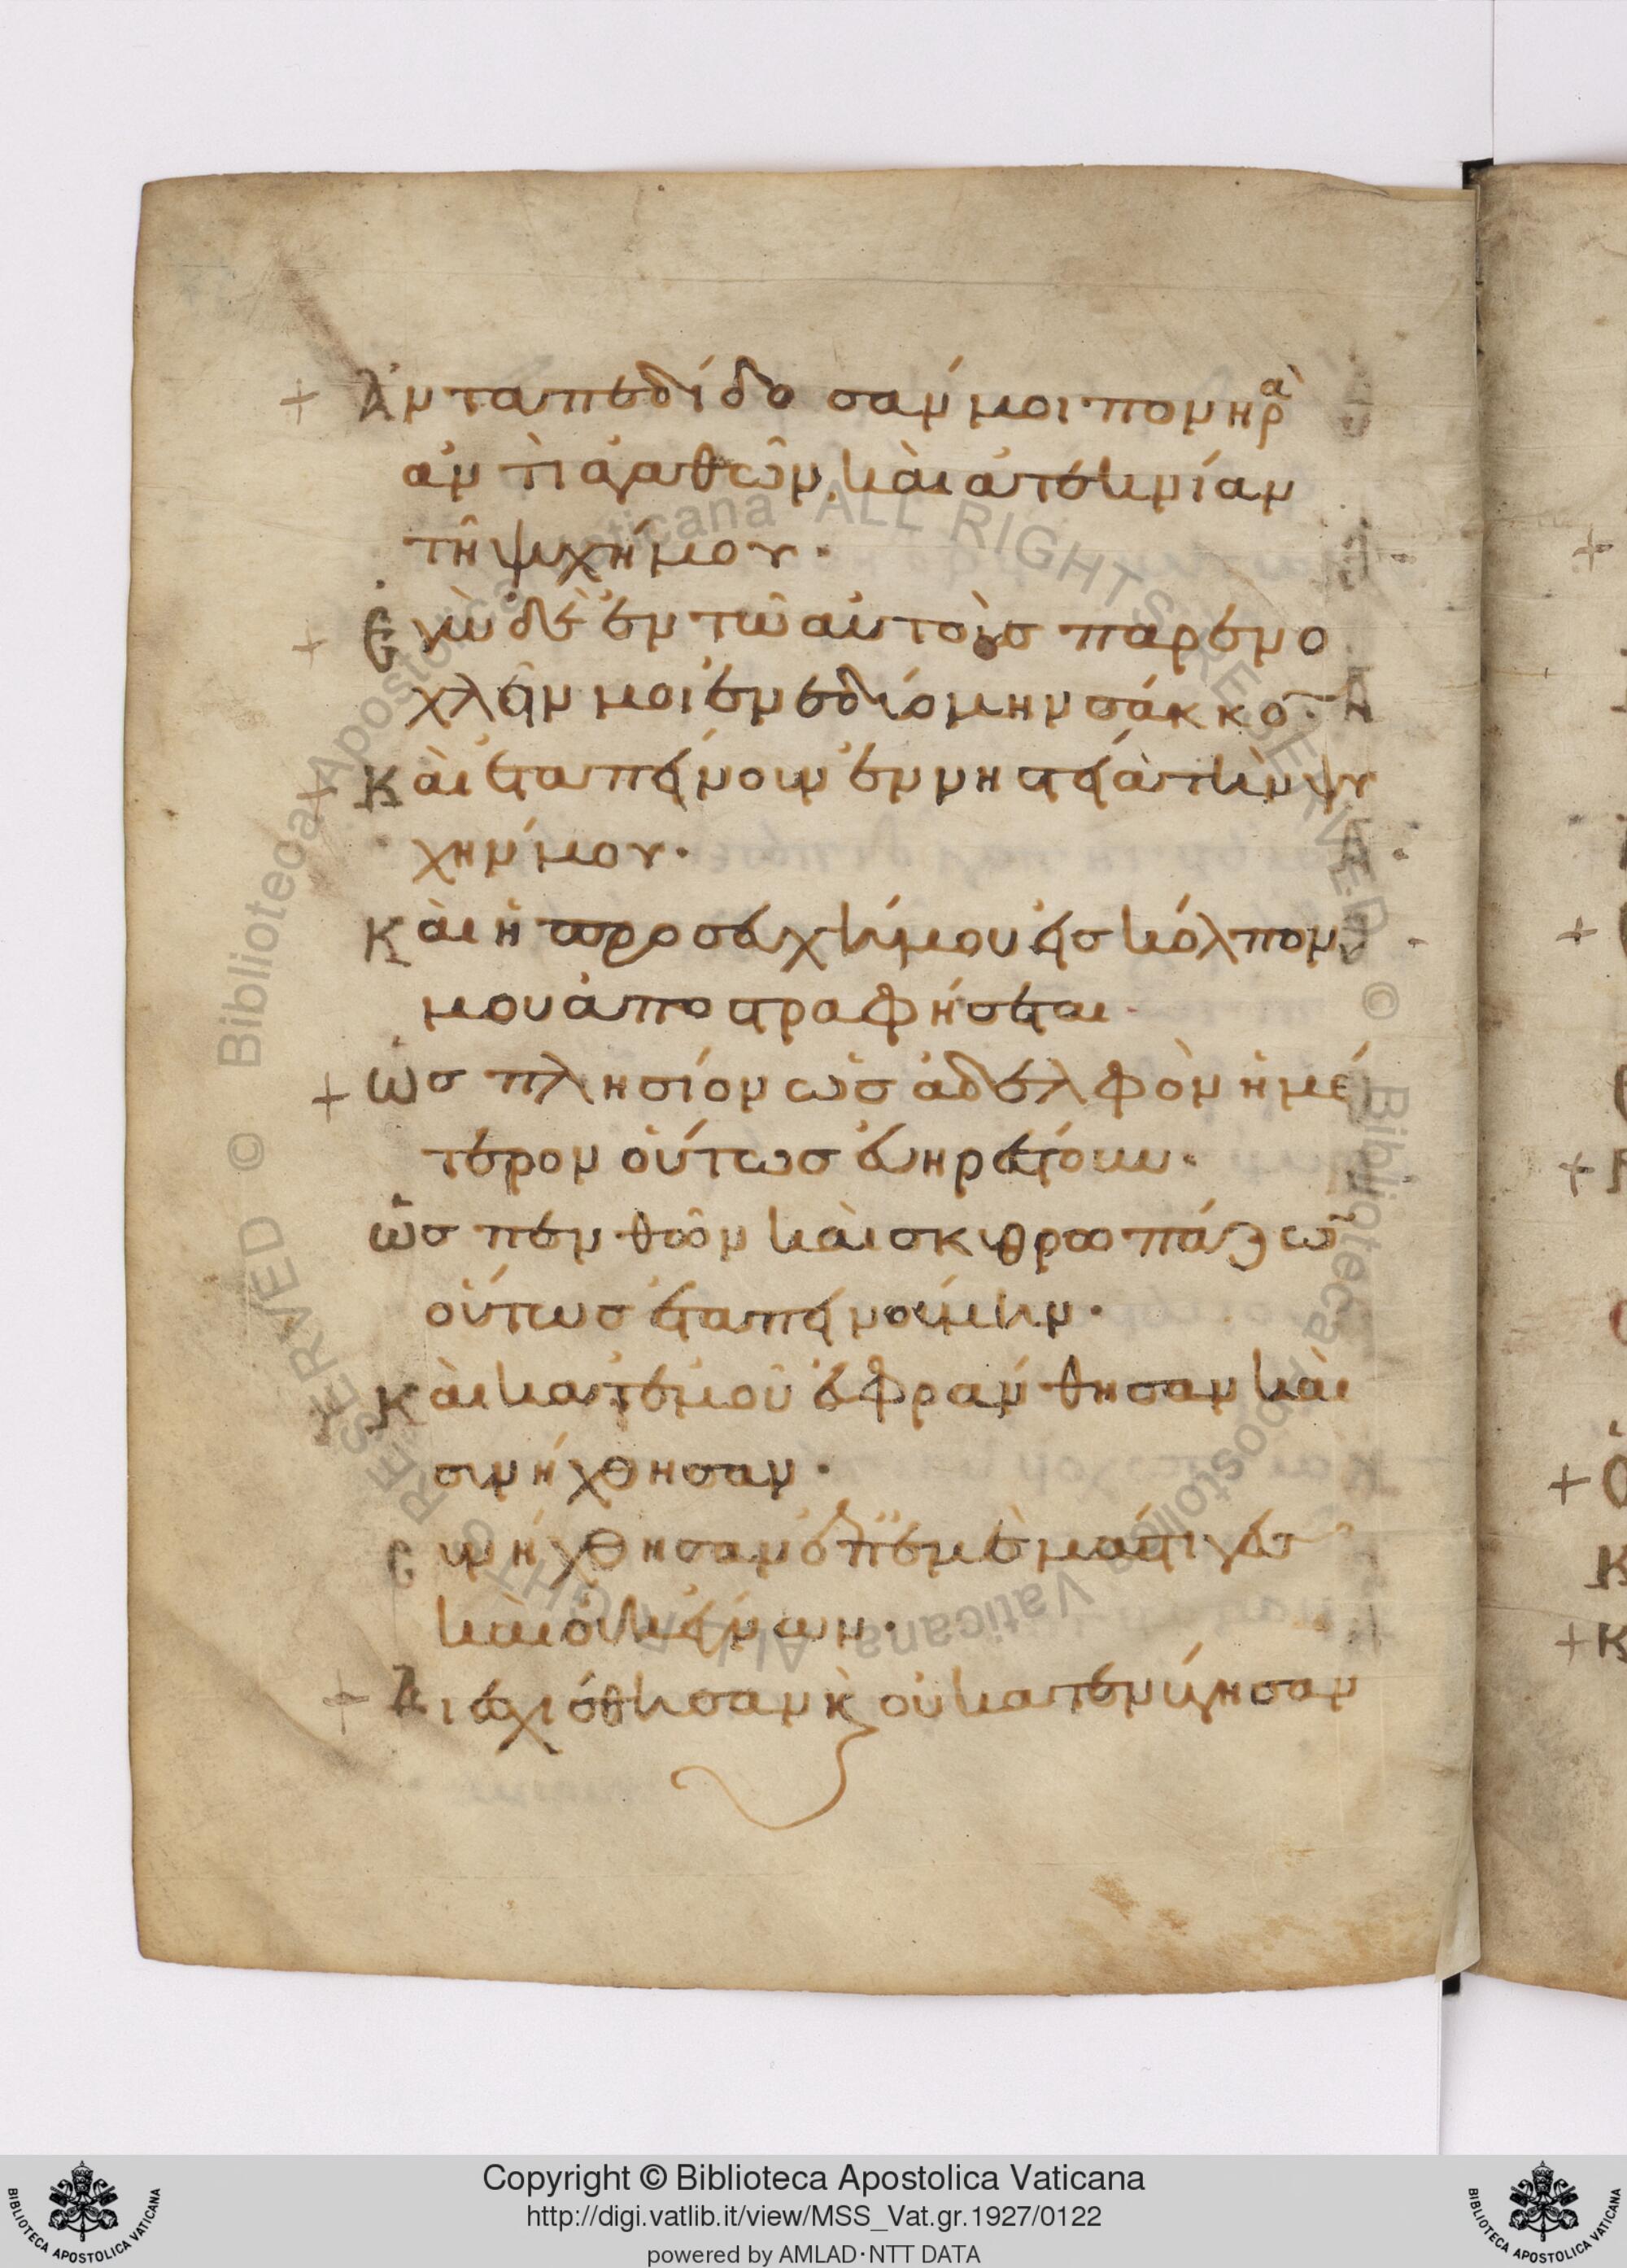 Ἀνταπεδίδοσάν μοι πονηρὰ
ἀντὶ ἀγαθῶν, καὶ ἀτεκνίαν
τῆ ψυχή μου·
Ἐγὼ δὲ ἐν τῶ αὐτοὺσ παρενο
χλεῖν μοι ἐνεδυόμην σάκκον·
Καὶ ἐταπείνουν ἐν νηστείᾳ τὴν ψυ
χήν μου·
Καὶ ἡ προσευχή μου εἰσ κόλπον
μου ἀποστραφήσεται
Ὡσ πλησίον ὡσ ἀδελφὸν ἡμέ
τερον οὕτωσ εὐηρέστουν·
Ὡσ πενθῶν καὶ σκυθρωπάζων
οὕτωσ ἐταπεινούμην·
Καὶ κατεμοῦ εὐφράνθησαν καὶ
συνήχθησαν·
Συνήχθησαν ἐπ ἐμὲ μάστιγεσ
καὶ οὐκ ἔγνων·
Διεσχίσθησαν κ οὐ κατενύγησαν
Copyright © Biblioteca Apostolica Vaticana
http://digi.vatlib.it/view/MSS_Vat.gr.1927/0122
powered by AMLAD·NTT DATA
BIBLIOTECA APOSTOLICA VATICANA
BIBLIOTECA APOSTOLICA VATICANA